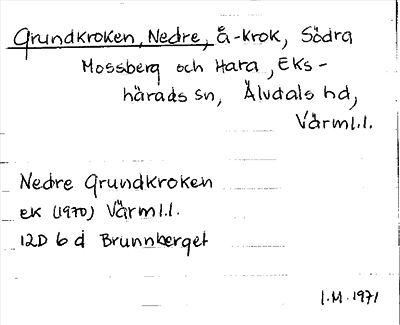 Grundkroken, Nedre, å-krok, Södra
Mossberg och Hara, Eks-
härads sn, Älvdals hd,
Värml.l.
Nedre Grundkroken
ek (1970) Värml.l.
12D 6 d Brunnberget
I.M. 1971